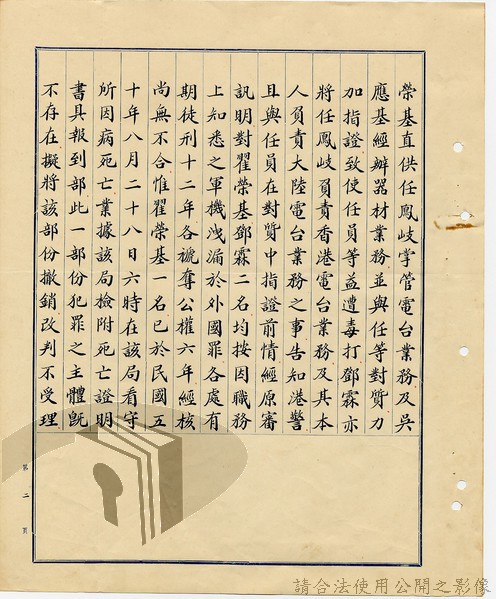 榮基直供任鳳岐掌管電台業務及吳
應基經辦器材業務並與任等對質力
加指證致使任員等益遭毒打鄧霖亦
將任鳳岐負責香港電台業務及其本
人負責大陸電台業務之事告知港警
且與任員在對質中指證前情經原審
訊明對翟榮基鄧霖二名均按因職務
上知悉之軍機洩漏於外國罪各處有
期徒刑十二年各褫奪公權六年經核
尚無不合惟翟榮基一名已於民國五
十年八月二十八日六時在該局看守
所因病死亡業據該局檢附死亡證明
書具報到部此一部份犯罪之主體旣
不存在擬將該部份撤銷改判不受理
第二頁
請合法使用公開之影像